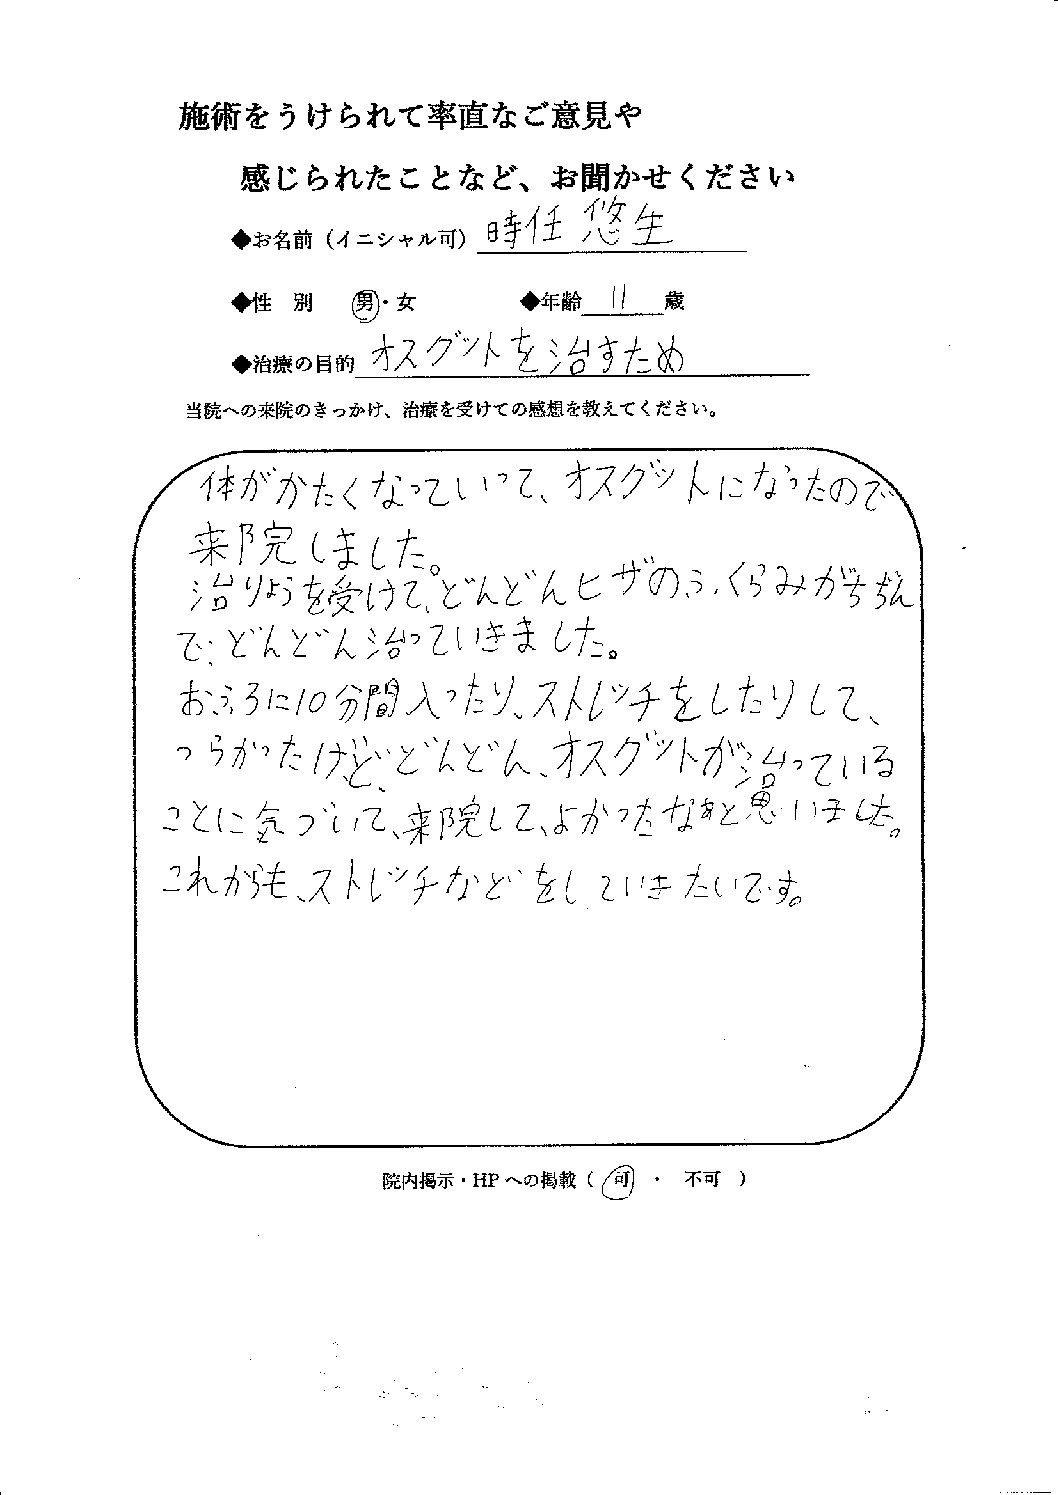 施術をうけられて率直なご意見や
感じられたことなど、お聞かせください
◆お名前（イニシャル可） 時任 悠生
◆性 別 男・女 ◆年齢 11 歳
◆治療の目的 オスグットを治すため
当院への来院のきっかけ、治療を受けての感想を教えてください。
体がかたくなっていって、オスグットになったので
来院しました。
治りょうを受けて、どんどんヒザのふくらみがちぢん
で、どんどん治っていきました。
おふろに10分間入ったり、ストレッチをしたりして、
つらかったけど、どんどん、オスグットが治っている
ことに気づいて、来院して、よかったなぁと思いました。
これからも、ストレッチなどをしていきたいです。
院内掲示・HPへの掲載（ 可 ・ 不可 ）